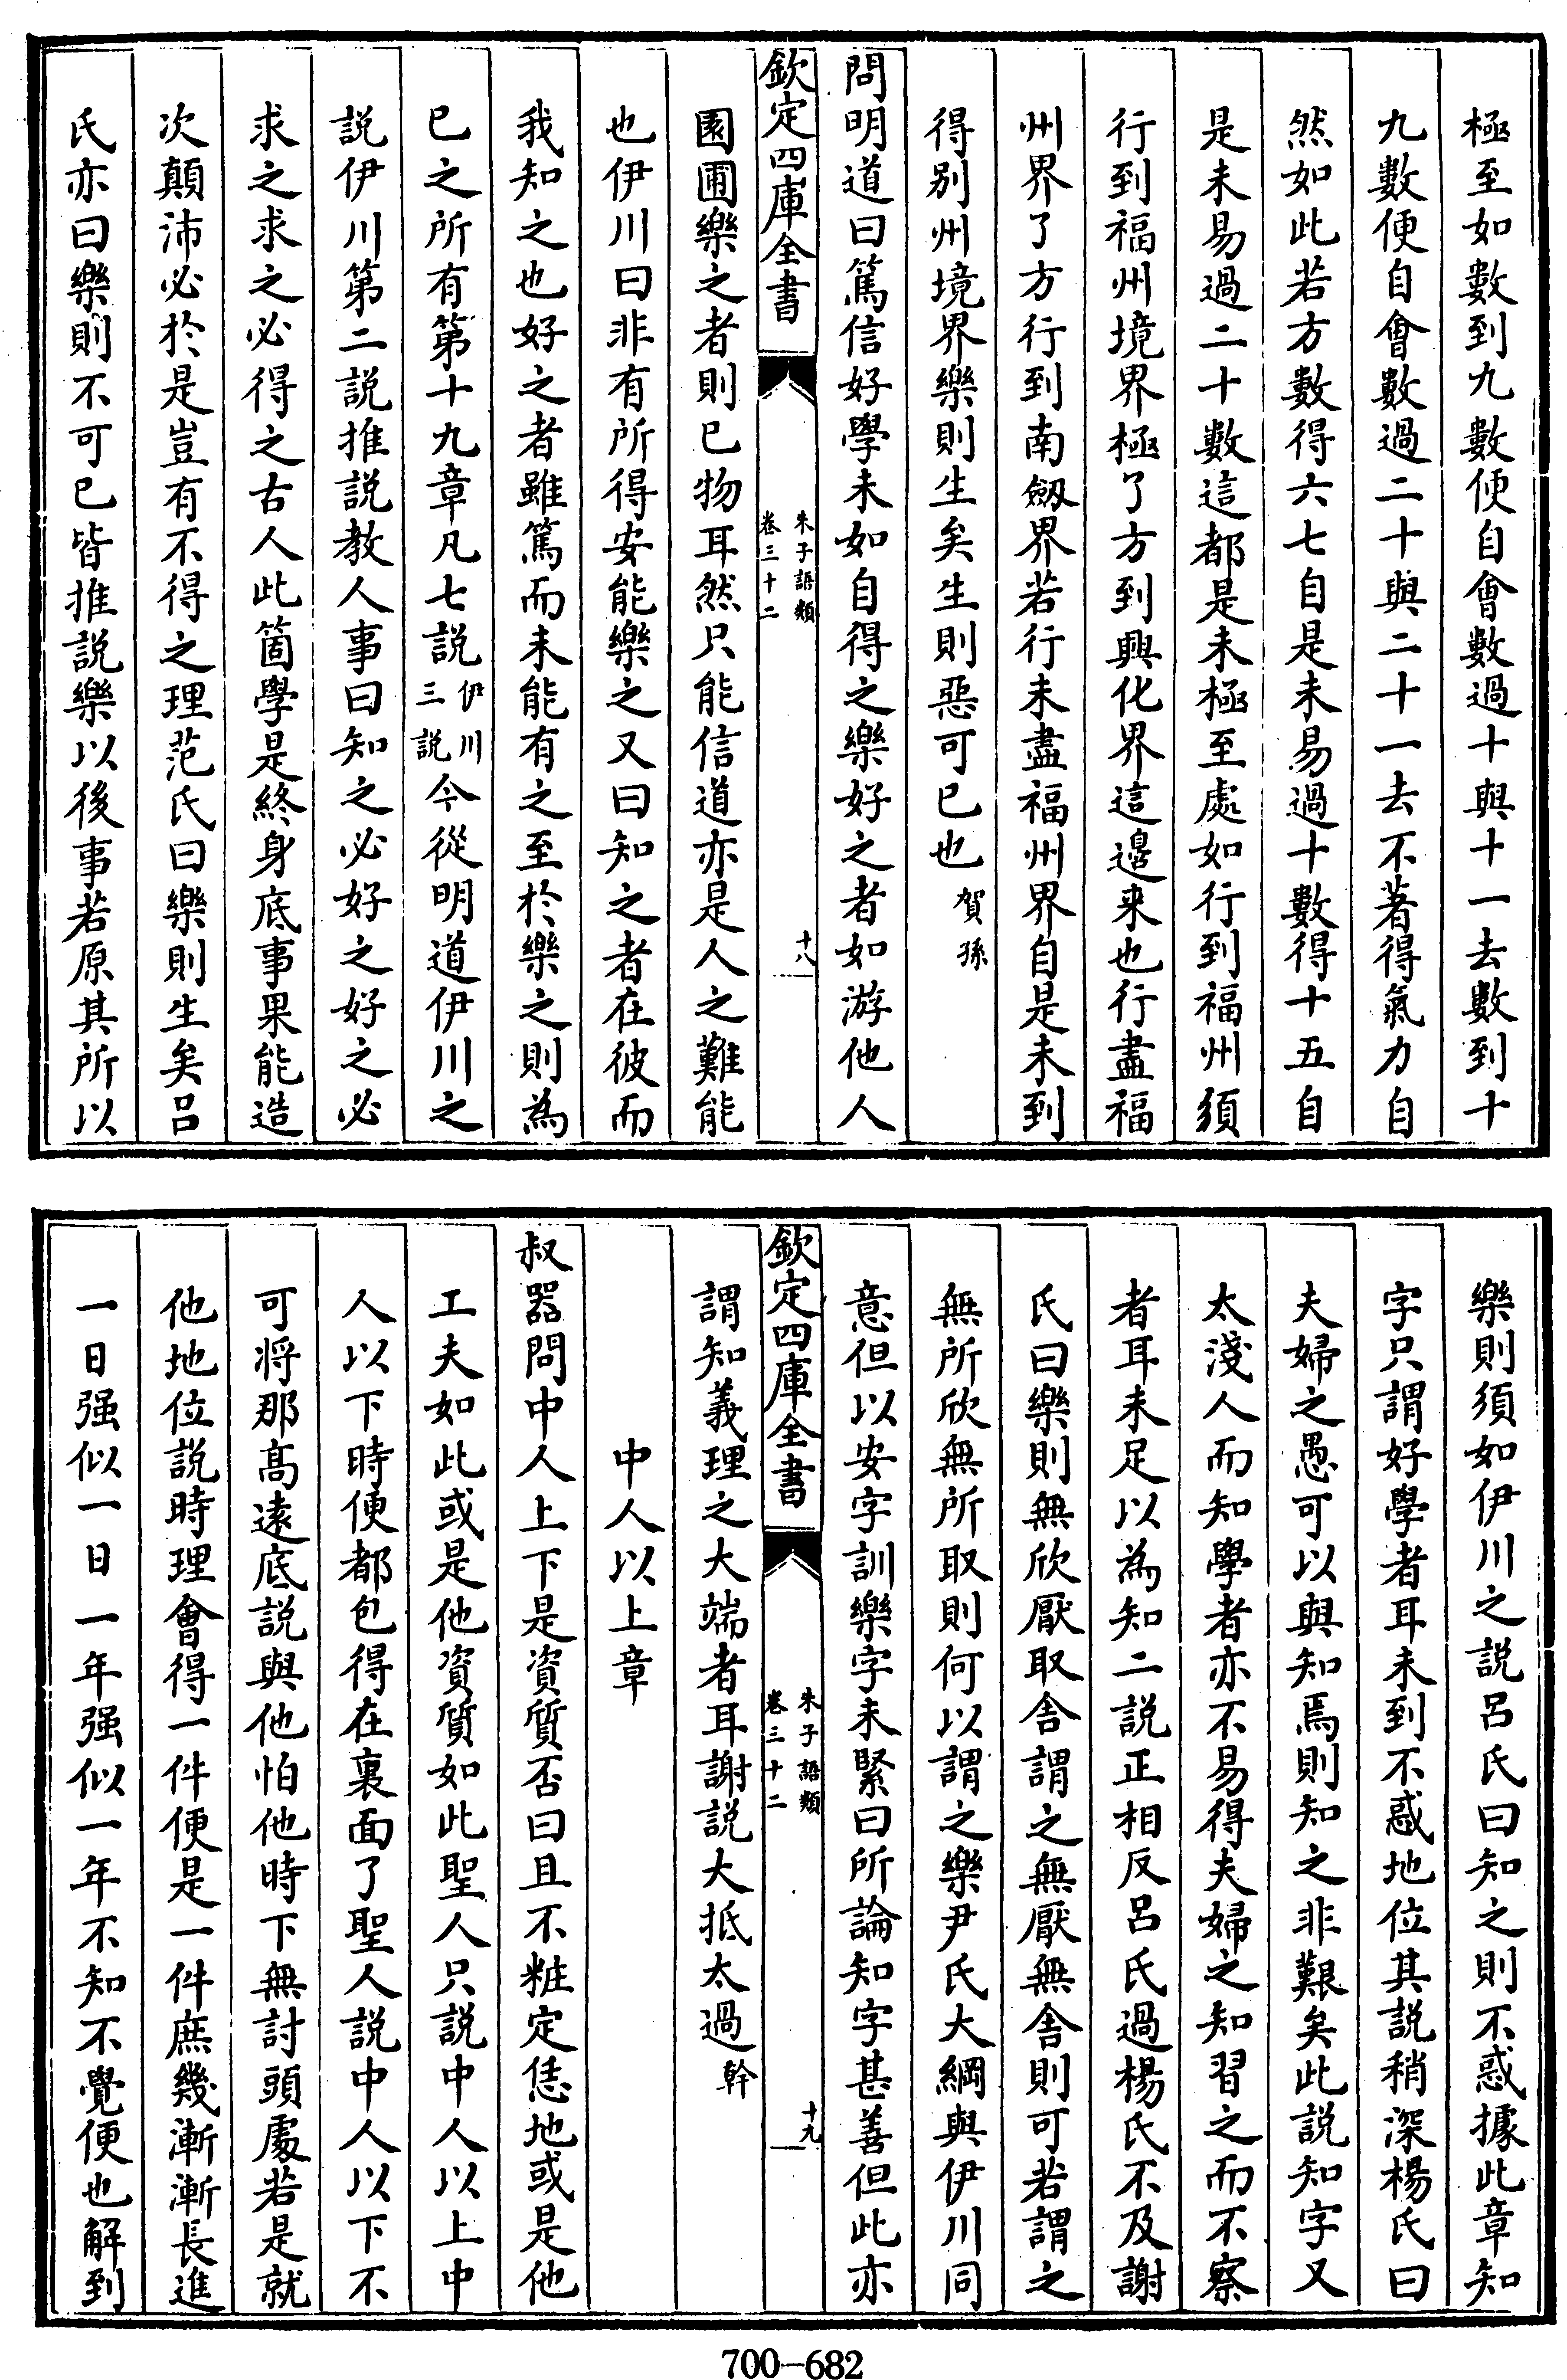 極至如數到九數便自會數過十與十一去數到十
九數便自會數過二十與二十一去不著得氣力自
然如此若方數得六七自是未易過十數得十五自
是未易過二十數這都是未極至處如行到福州須
行到福州境界極了方到興化界這邊來也行盡福
州界了方行到南劔界若行未盡福州界自是未到
得别州境界樂則生矣生則惡可已也賀孫
問明道曰篤信好學未如自得之樂好之者如游他人
欽定四庫全書
朱子語類
卷三十二
十八
園圃樂之者則已物耳然只能信道亦是人之難能
也伊川曰非有所得安能樂之又曰知之者在彼而
我知之也好之者雖篤而未能有之至於樂之則為
已之所有第十九章凡七説伊川三説今從明道伊川之
説伊川第二説推説教人事曰知之必好之好之必
求之求之必得之古人此箇學是終身底事果能造
次顛沛必於是豈有不得之理范氏曰樂則生矣吕
氏亦曰樂則不可已皆推説樂以後事若原其所以
樂則須如伊川之説吕氏曰知之則不惑據此章知
字只謂好學者耳未到不惑地位其説稍深楊氏曰
夫婦之愚可以與知焉則知之非艱矣此説知字又
太淺人而知學者亦不易得夫婦之知習之而不察
者耳未足以為知二説正相反吕氏過楊氏不及謝
氏曰樂則無欣厭取舍謂之無厭無舍則可若謂之
無所欣無所取則何以謂之樂尹氏大綱與伊川同
意但以安字訓樂字未緊曰所論知字甚善但此亦
欽定四庫全書
朱子語類
卷三十二
十九
謂知義理之大端者耳謝説大抵太過幹
中人以上章
叔器問中人上下是資質否曰且不粧定恁地或是他
工夫如此或是他資質如此聖人只説中人以上中
人以下時便都包得在裏面了聖人説中人以下不
可將那高遠底説與他怕他時下無討頭處若是就
他地位説時理會得一件便是一件庶幾漸漸長進
一日强似一日一年强似一年不知不覺便也解到
700-682